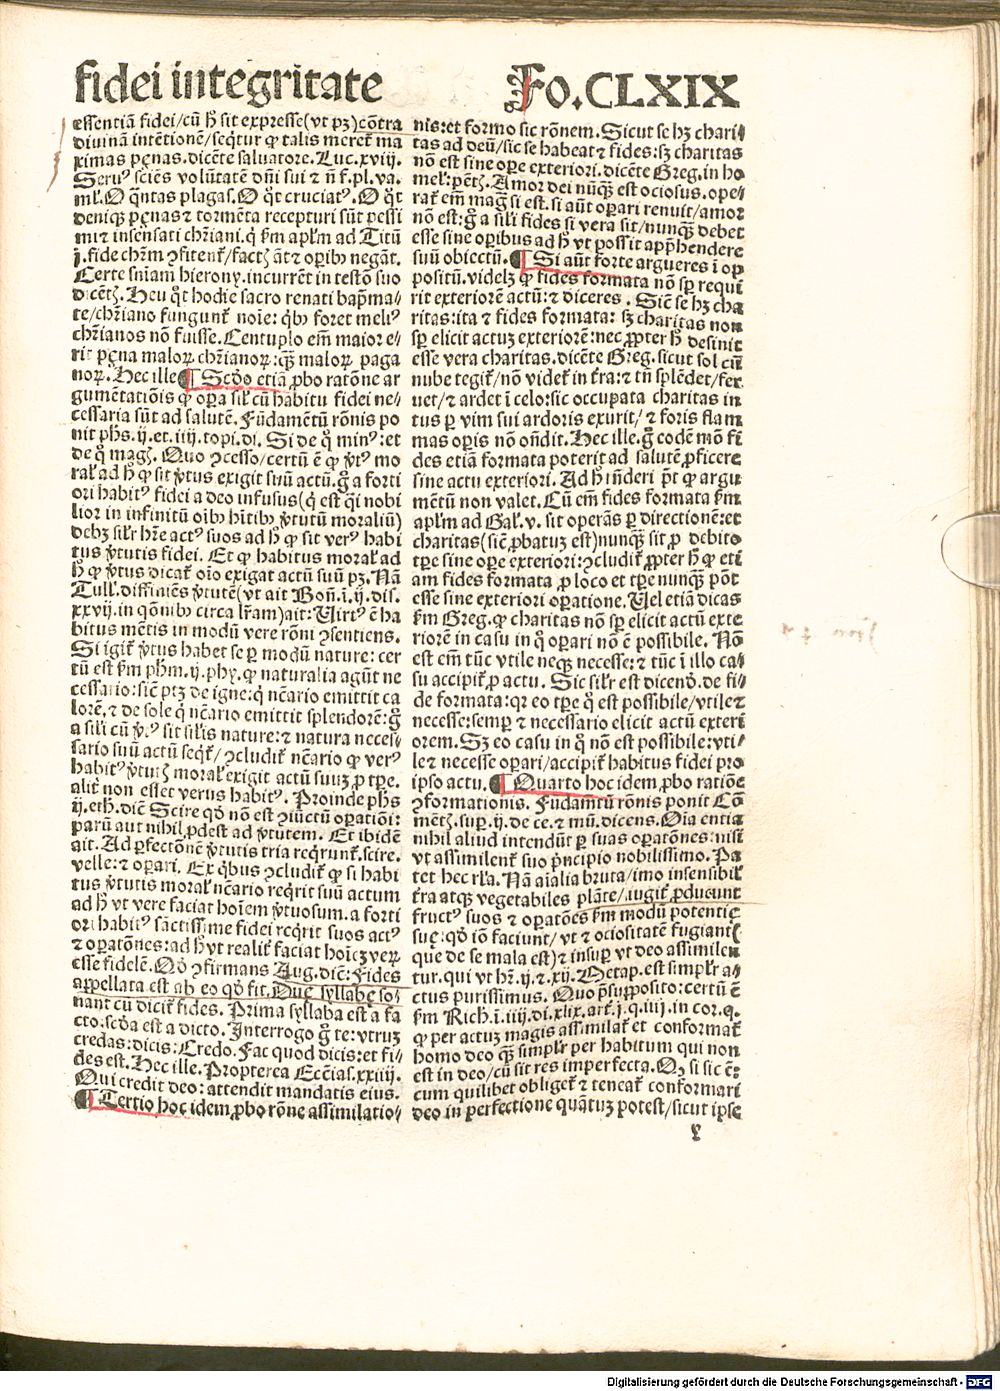 fidei integritate
Fo.CLXIX
essentiã fidei/cũ ħ sit expresse(vt pȝ)cõtra
diuinã intẽtionẽ/seqͥtur ꝙ talis meret᷑ ma
ximas pęnas.dicẽte saluatore.Luc.xviij.
Seruꝰ sciẽs volũtatẽ dñi sui ⁊ ñ f.pl.va.
ml᷑.O qͣntas plagas.O qͦt cruciatꝰ.O qͦt
deniqꝫ pęnas ⁊ tormẽta recepturi sũt pessi
mi ⁊ insensati chr̃iani.q̇ ẜm apl᷑m ad Titũ
j.fide chr̃m ꝯfitent᷑/factꝭ aũt ⁊ oꝑibꝰ negãt.
Certe sñiam hierony.incurrẽt in testõ suo
dicẽtꝭ.Heu qͦt hodie sacro renati bapt̃ma-
te/chr̃iano fungunt᷑ noĩe: qͥbꝰ foret meliꝰ
chr̃ianos nõ fuisse.Centuplo em̃ maior e-
rit pęna maloꝝ chr̃ianoꝝ:qꝫ̃ maloꝝ paga
noꝝ.Hec ille ¶ Scďo etiã ꝓbo ratõne ar
gumẽtatiõis ꝙ oꝑa sil᷑ cũ habitu fidei ne-
cessaria sũt ad salutẽ.Fũdamẽtũ rõnis po
nit ph̃s.ij.et.iiij.topi.di.Si de qͦ minꝰ:et
de qͦ magꝭ.Quo ꝯcesso/certũ ẽ ꝙ v̓tꝰ mo
ral᷑ ad ħ ꝙ sit v̓tus exigit suũ actũ.g̃ a forti
ori habitꝰ fidei a deo infusus(q̇ est qͣi nobi
lior in infinitũ oĩbꝰ hĩtibꝰ v̓tutũ moraliũ)
debȝ sil᷑r hr̃e actꝰ suos ad ħ ꝙ sit verꝰ habi
tus v̓tutis fidei. Et ꝙ habitus moral᷑ ad
ħ ꝙ v̓tus dicat᷑ oĩo exigat actũ suũ pȝ.Nã
Tull᷑.diffiniẽs v̓tutẽ(vt ait Boñ.ĩ.ij.dis.
xxvij.in qõnibꝰ circa lr̃am)ait:Uirtꝰ ẽ ha
bitus mẽtis in modũ vere rõni ꝯsentiens.
Si igit᷑ v̓tus habet se ꝑ modũ nature: cer
tũ est ẜm ph̃m.ij.phy.ꝙ naturalia agũt ne
cessario:sic̃ ptȝ de igne:q̇ nc̃ario emittit ca
lorẽ,⁊ de sole q̇ nc̃ario emittit splendorẽ:g̃
a sil᷑i cũ v̓.ꝰ sit sil᷑is nature:⁊ natura neces-
sario suũ actũ seqͥt᷑/ ꝯcludit᷑ nc̃ario ꝙ verꝰ
habitꝰ v̓tutꝭ moral᷑ exigit actũ suuȝ ꝓ tꝑe.
alit᷑ non esset verus habitꝰ. Proinde ph̃s
ij.eth.dic̃ Scire qďo nõ est ꝯiũctũ oꝑatiõi:
parũ aut nihil ꝓdest ad v̓tutem. Et ibidẽ
ait.Ad ꝑfectõnẽ v̓tutis tria reqͥrunt᷑.scire.
velle:⁊ oꝑari. Ex qͥbus ꝯcludit᷑ ꝙ si habi
tus v̓tutis moral᷑ nc̃ario reqͥrit suũ actum
ad ħ vt vere faciat hoĩem v̓tuosum.a forti
ori habitꝰ sãctissime fidei reqͥrit suos actꝰ
⁊ oꝑatõnes:ad ħ vt realit᷑ faciat hoĩeȝ veꝝ
esse fidelẽ.Qďo ꝯfirmans Aug.dic̃:Fides
appellata est ab eo qďo fit.Due syllabę so-
nant cũ dicit᷑ fides. Prima syllaba est a fa
cto:scďa est a dicto. Interrogo g̃ te:vtruȝ
credas:dicis:Credo.Fac quod dicis:et fi-
des est.Hec ille.Propterea Ecc̃ias.xxiiij.
Qui credit deo: attendit mandatis eius.
¶ Tertio hoc idem ꝓbo rõne assimilatio-
nis:et formo sic rõnem.Sicut se hȝ chari-
tas ad deũ/sic se habeat ⁊ fides:sȝ charitas
nõ est sine oꝑe exteriori.dicẽte Greg.in ho
mel᷑:pẽtꝭ.Amor dei nũqꝫ̃ est ociosus.ope-
rat᷑ em̃ magͣ si est.si aũt oꝑari renuit/amor
nõ est:g̃ a sil᷑i fides si vera sit/nunqꝫ̃ debet
esse sine oꝑibus ad ħ vt possit app̃hendere
suũ obiectũ. ¶ Si aũt forte argueres ĩ op
positũ.videlȝ ꝙ fides formata nõ sꝑ requi
rit exteriorẽ actũ:⁊ diceres . Sic̃ se hȝ cha
ritas:ita ⁊ fides formata: sȝ charitas non
sꝑ elicit actuȝ exteriorẽ:nec ꝓpter ħ desinit
esse vera charitas.dicẽte Greg.sicut sol cũ
nube tegit᷑/nõ videt᷑ in t̃ra:⁊ tñ splẽdet/fer
uet/⁊ ardet ĩ celo:sic occupata charitas in
tus ꝑ vim sui ardoris exurit/⁊ foris flam
mas oꝑis nõ oñdit.Hec ille.g̃ eodẽ mõ fi
des etiã formata poterit ad salutẽ ꝓficere
sine actu exteriori.Ad ħ rñderi pt̃ ꝙ argu
mẽtũ non valet.Cũ em̃ fides formata ẜm
apl᷑m ad Gal᷑.v.sit operãs ꝑ directionẽ:et
charitas(sic̃ ꝓbatuȝ est)nunqꝫ̃ sit ꝓ debito
tꝑe sine oꝑe exteriori:ꝯcludit᷑ ꝓpter ħ ꝙ eti
am fides formata ꝓ loco et tꝑe nunqꝫ̃ põt
esse sine exteriori oꝑatione.Uel etiã dicas
ẜm Greg.ꝙ charitas nõ sꝑ elicit actũ exte
riorẽ in casu in qͦ oꝑari nõ ẽ possibile. Nõ
est em̃ tũc vtile neqꝫ necesse:⁊ tũc ĩ illo ca-
su accipit᷑ ꝓ actu. Sic sil᷑r est dicenď.de fi-
de formata:qꝛ eo tꝑe qͦ est possibile/vtile⁊
necesse:semper ⁊ necessario elicit actũ exteri
orem.Sȝ eo casu in qͦ nõ est possibile:vti-
le⁊ necesse oꝑari/accipit᷑ habitus fidei pro
ipso actu. ¶ Quarto hoc idem ꝓbo ratiõe
ꝯformationis. Fũdamtũ rõnis ponit Cõ
mẽtꝭ.suꝑ.ij.de ce.⁊ mũ.dicens.Oĩa entia
nihil aliud intendũt ꝑ suas oꝑatõnes:nisi
vt assimilent᷑ suo pͥncipio nobilissimo.Pa
tet hec rl᷑a.Nã aĩalia bruta/imo insensibil᷑
t̃ra atqꝫ vegetabiles plãte/iugit᷑ ꝓducunt
fructꝰ suos ⁊ oꝑatões ẜm modũ potentię
suę:qďo iõ faciunt/vt ⁊ ociositatẽ fugiant(
que de se mala est)⁊ insuꝑ vt deo assimilen
tur.qui vt hr̃.ij.⁊.xij.Metap.est simpl᷑r a-
ctus purissimus. Quo p̃supposito:certũ ẽ
ẜm Rich.ĩ.iiij.di.xlix.art᷑.j.q.iiij.in cor.q.
ꝙ per actuȝ magis assimilat᷑ et conformat᷑
homo deo qꝫ̃ simpl᷑r per habitum qui non
est in deo/cũ sit res imperfecta.Qꝫ si sic ẽ:
cum quilibet obliget᷑ ⁊ teneat᷑ conformari
deo in perfectione quãtuȝ potest/sicut ipse
y
Digitalisierung gefördert durch die Deutsche Forschungsgemeinschaft - DFG